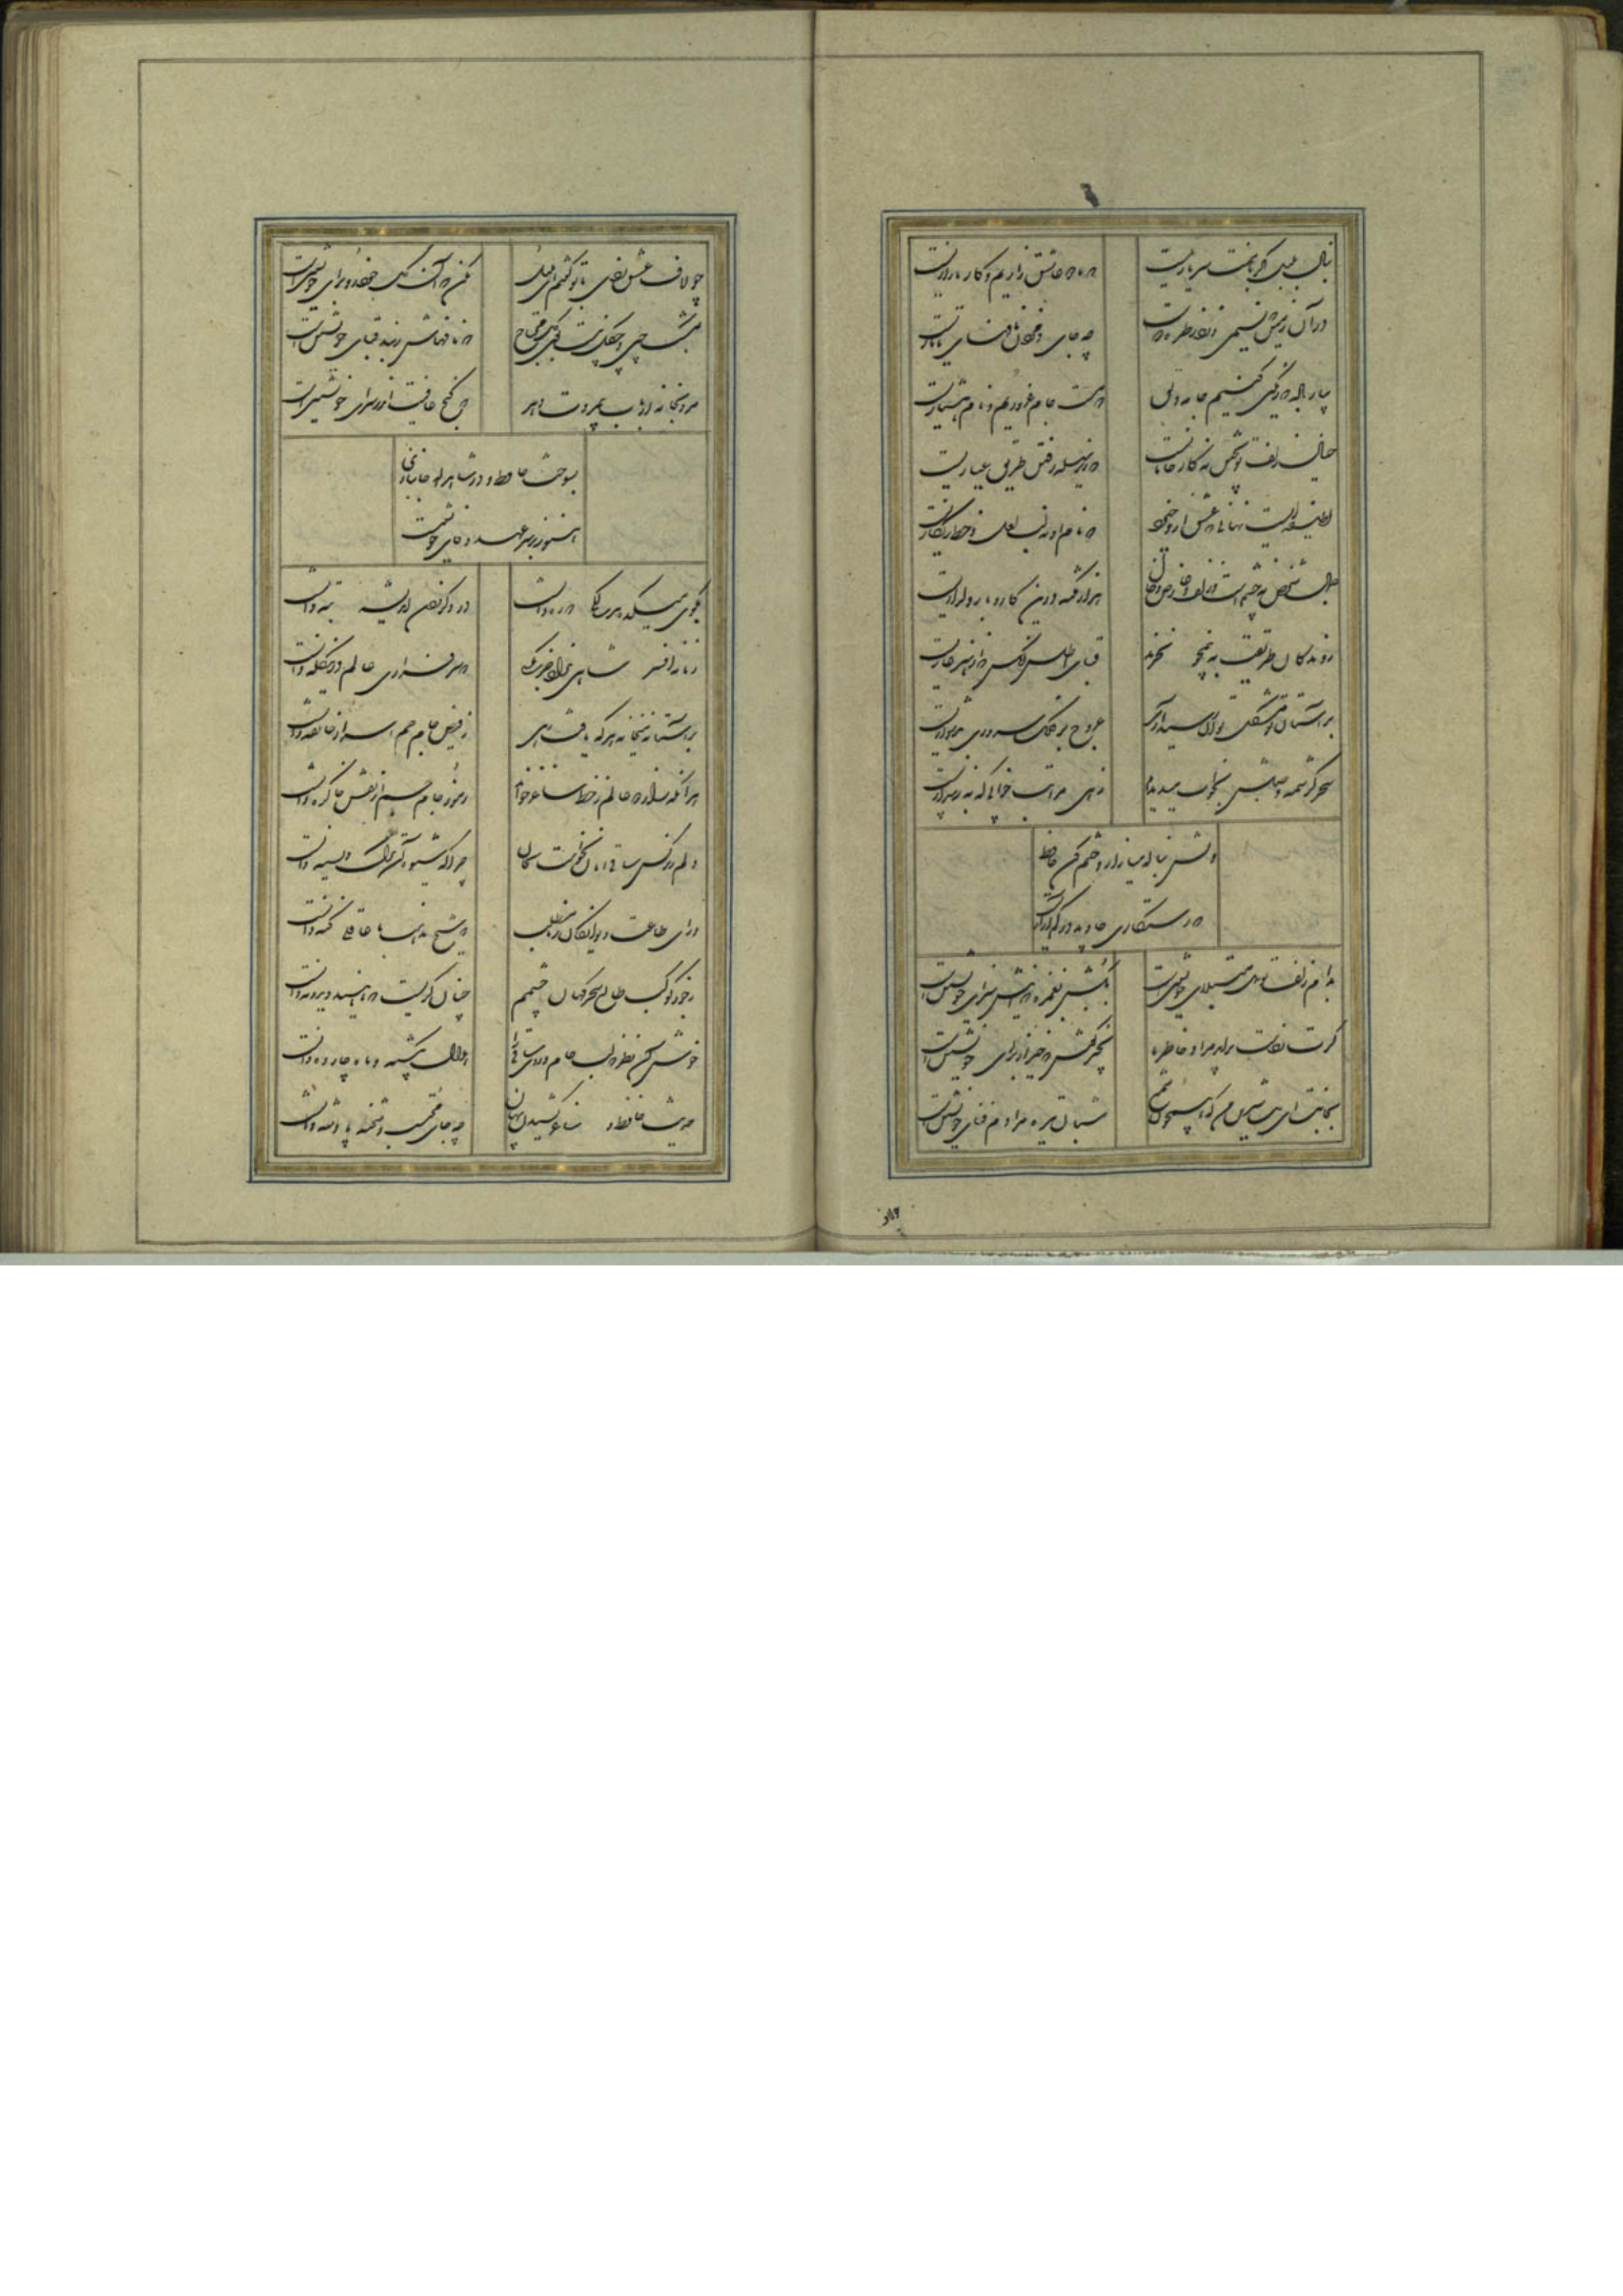 بنال بلبل اگر با منت سر یاریست
که ما دو عاشق زاریم و کار ما زاریست
در آن زمین که نسیمی وزد ز طره دوست
چه جای دم زدن نافهای تاتاریست
بیار باده که رنگین کنیم جامه دلق
که مست جام غروریم و نام هشیاریست
خیال زلف تو پختن نه کار خامانست
که زیر سلسله رفتن طریق عیاریست
لطیفه ایست نهانی که عشق ازو خیزد
که نام او نه لب لعل و خط زنگاریست
جمال شخص نه چشم است و زلف و عارض و خال
هزار نکته درین کار و بار دلداریست
روندکان طریقت به نیم جو نخرند
قبای اطلس آنکس که از هنر عاریست
بر آستان تو مشکل توان رسید آری
عروج بر فلک سروری بدشواریست
سحر کرشمه وصلش بخواب میدیدم
زهی مراتب خوابی که به ز بیداریست
دلش بناله میازار و ختم کن حافظ
که رستکاری جاوید در کم آزاریست
بدام زلف تو دل مبتلای خویشتنست
بکش بغمزه که اینش سزای خویشتنست
کرت ز دست براید مراد خاطر ما
بخیر کوش که خیر از برای خویشتنست
بجانت ای بت شیرین من که همچون شمع
شبان تیره مرادم فنای خویشتنست
چو لاف عشق زدی با تو گفتم ای بلبل
مکن که آن گل خودرو برای خویشتنست
بمشک چین و چکل نیست بوی گل محتاج
که نافهاش ز بند قبای خویشتنست
مرو بخانه ارباب بیمروت دهر
که کنج عافیتت در سرای خویشتنست
بسوخت حافظ و در شاهراه جانبازی
هنوز بر سر عهد و وفای خویشتنست
بکوی میکده هر سالکی که ره دانست
در دگر زدن اندیشه تبه دانست
زمانه افسر شاهی نداد جز بکسی
که سرفرازی عالم درین کله دانست
بر آستانه میخانه هر که یافت رهی
ز فیض جام جم اسرار خانقه دانست
هر آنکه راز دو عالم ز خط ساغر خواند
رموز جام جم از نقش خاک ره دانست
دلم ز نرکس ساقی امان نخواست بجان
چرا که شیوه آن ترک دل سیه دانست
ورای طاعت دیوانکان ز ما مطلب
که شیخ مذهب ما عاقلی کنه دانست
ز جور کوکب طالع سحرکهان چشمم
چنان کریست که ناهید دید و مه دانست
خوش آن نظر که لب جام و روی ساقی را
هلال یکشبه و ماه چارده دانست
حدیث حافظ و ساغر کشیدن پنهان
چه جای محتسب و شحنه پادشه دانست
چو لاف